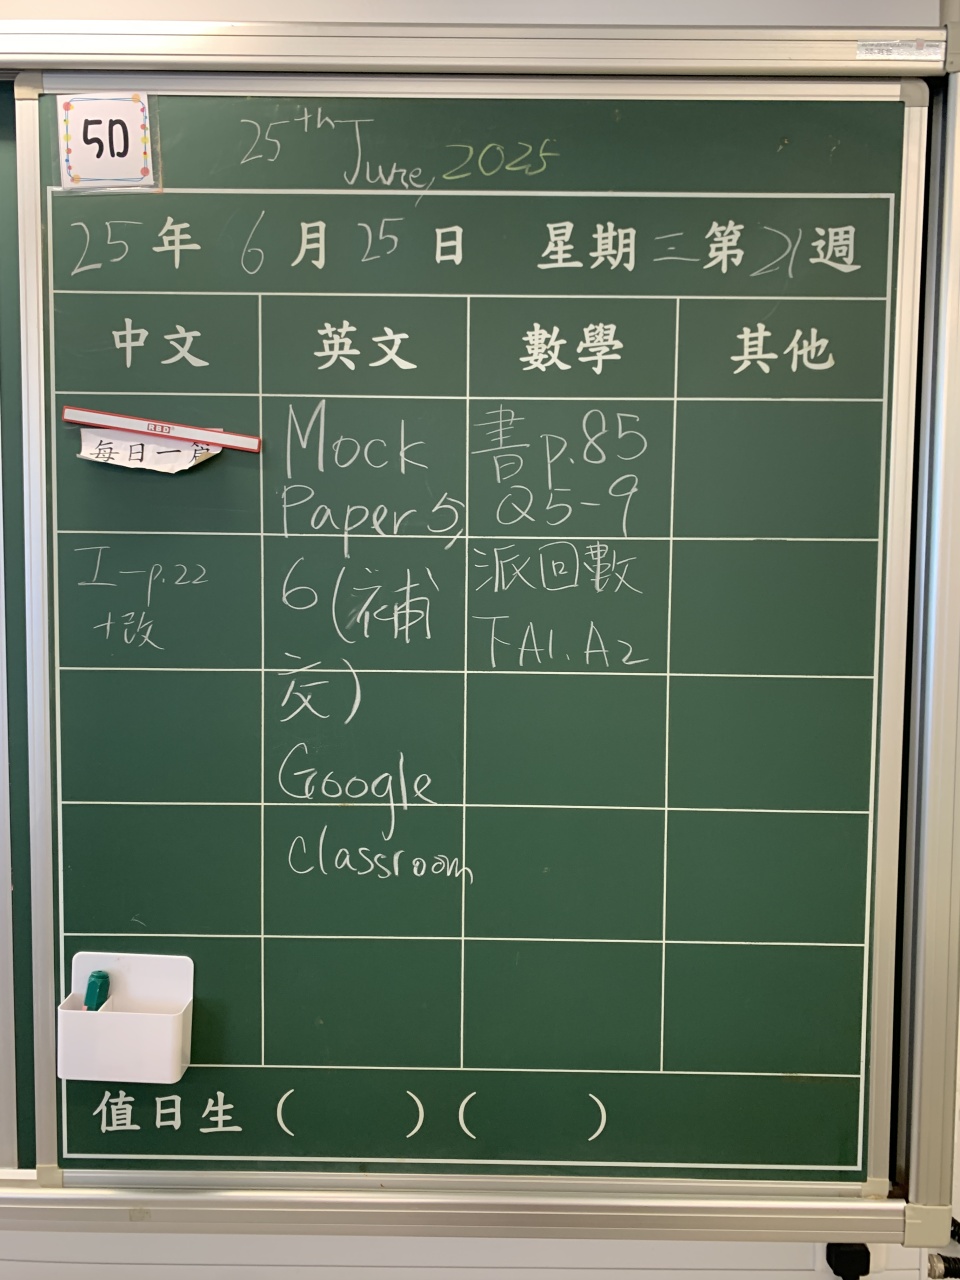 5D
25th June, 2025
25年 6月 25日 星期三 第21週
中文 英文 數學 其他
RBD
每日一篇
工-p.22
+改
Mock
Paper 5,
6(補
交)
Google
classroom
書p.85
Q5-9
派回數
下A1.A2
值日生 ( ) ( )